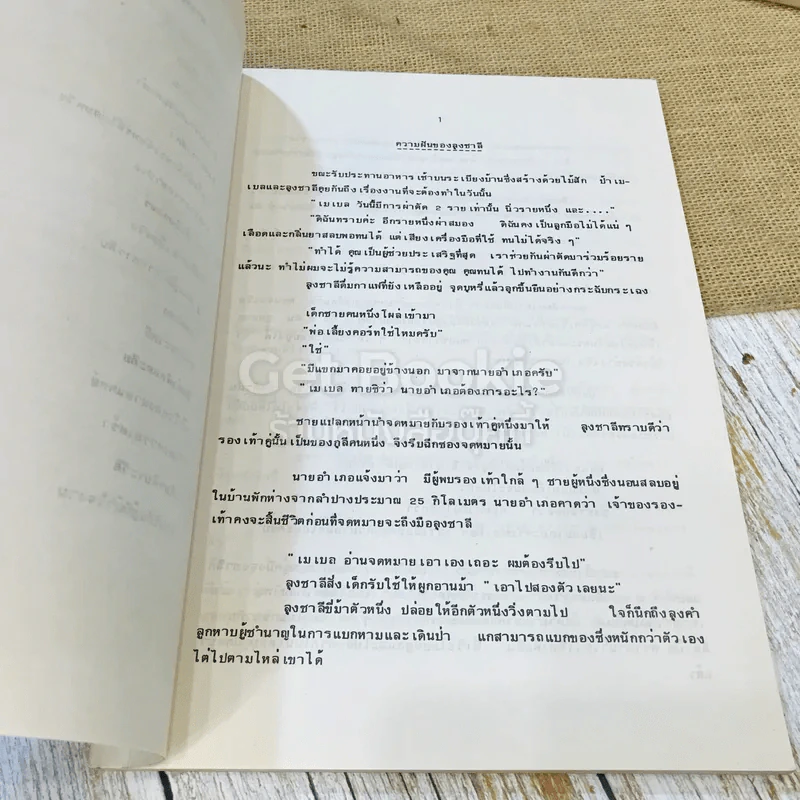 1
ความฝันของลุงชาลี
ขณะรับประทานอาหารเช้าบนระเบียงบ้านซึ่งสร้างด้วยไม้สัก ป้าเม-
เบลและลุงชาลีคุยกันถึงเรื่องงานที่จะต้องทำในวันนั้น
"เมเบล วันนี้มีการผ่าตัด 2 รายเท่านั้น นิ่วรายหนึ่ง และ...."
"ดิฉันทราบค่ะ อีกรายหนึ่งผ่าสมอง ดิฉันคงเป็นลูกมือไม่ได้แน่ ๆ
เลือดและกลิ่นยาสลบพอทนได้ แต่เสียงเครื่องมือที่ใช้ ทนไม่ได้จริง ๆ"
"ทำได้ คุณเป็นผู้ช่วยประเสริฐที่สุด เราช่วยกันผ่าตัดมาร่วมร้อยราย
แล้วนะ ทำไมผมจะไม่รู้ความสามารถของคุณ คุณทนได้ ไปทำงานกันดีกว่า"
ลุงชาลีดื่มกาแฟที่ยังเหลืออยู่ จุดบุหรี่แล้วลุกขึ้นยืนอย่างกระฉับกระเฉง
เด็กชายคนหนึ่งโผล่เข้ามา
"พ่อเลี้ยงคอร์ทใช่ไหมครับ"
"ใช่"
"มีแขกมาคอยอยู่ข้างนอก มาจากนายอำเภอครับ"
"เมเบล ทายซิว่า นายอำเภอต้องการอะไร?"
Get Bookie
ร้านหนังสือเก็ทบุ๊คกี้
ชายแปลกหน้านำจดหมายกับรองเท้าคู่หนึ่งมาให้ ลุงชาลีทราบดีว่า
รองเท้าคู่นั้นเป็นของกุลีคนหนึ่ง จึงรีบฉีกซองจดหมายนั้น
นายอำเภอแจ้งมาว่า มีผู้พบรองเท้าใกล้ ๆ ชายผู้หนึ่งซึ่งนอนสลบอยู่
ในบ้านพักห่างจากลำปางประมาณ 25 กิโลเมตร นายอำเภอคาดว่า เจ้าของรอง-
เท้าคงจะสิ้นชีวิตก่อนที่จดหมายจะถึงมือลุงชาลี
"เมเบล อ่านจดหมายเอาเองเถอะ ผมต้องรีบไป"
ลุงชาลีสั่งเด็กรับใช้ให้ผูกอานม้า "เอาไปสองตัวเลยนะ"
ลุงชาลีขี่ม้าตัวหนึ่ง ปล่อยให้อีกตัวหนึ่งวิ่งตามไป ใจก็นึกถึงลุงคำ
ลูกหาบผู้ชำนาญในการแบกหามและเดินป่า แกสามารถแบกของซึ่งหนักกว่าตัวเอง
ไต่ไปตามไหล่เขาได้